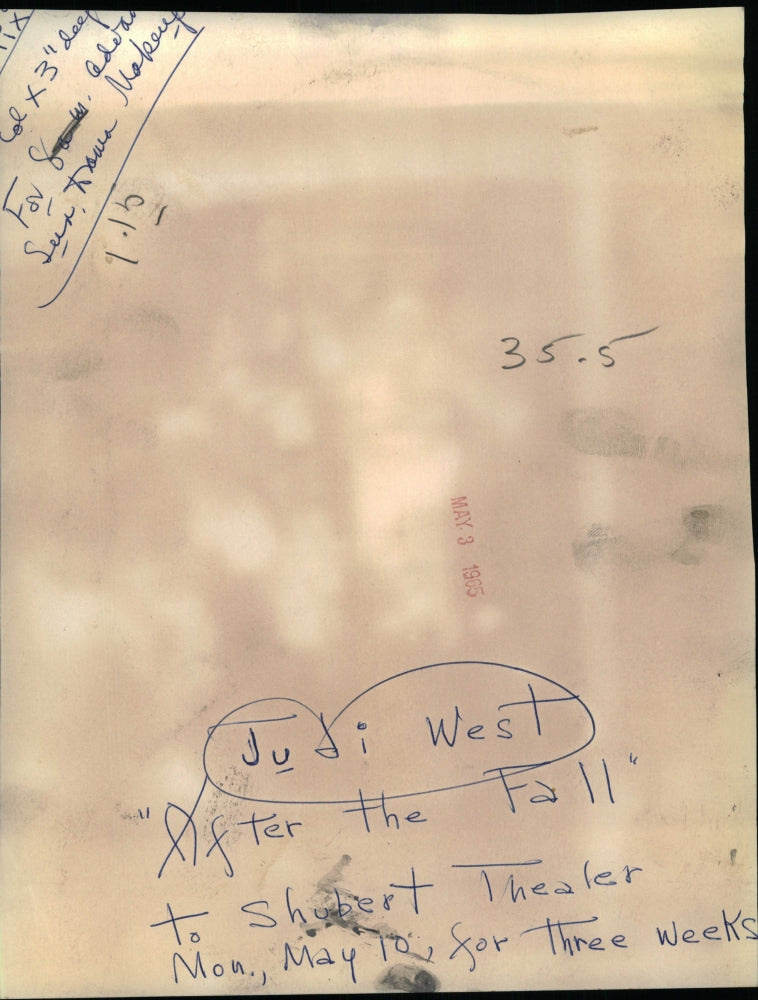 Pix
Col X 3" deep
For Sun. advan
Sun. Drama Makeup
35.5
MAY 3 1965
Judi West
"After the Fall"
to Shubert Theater
Mon., May 10, for three weeks